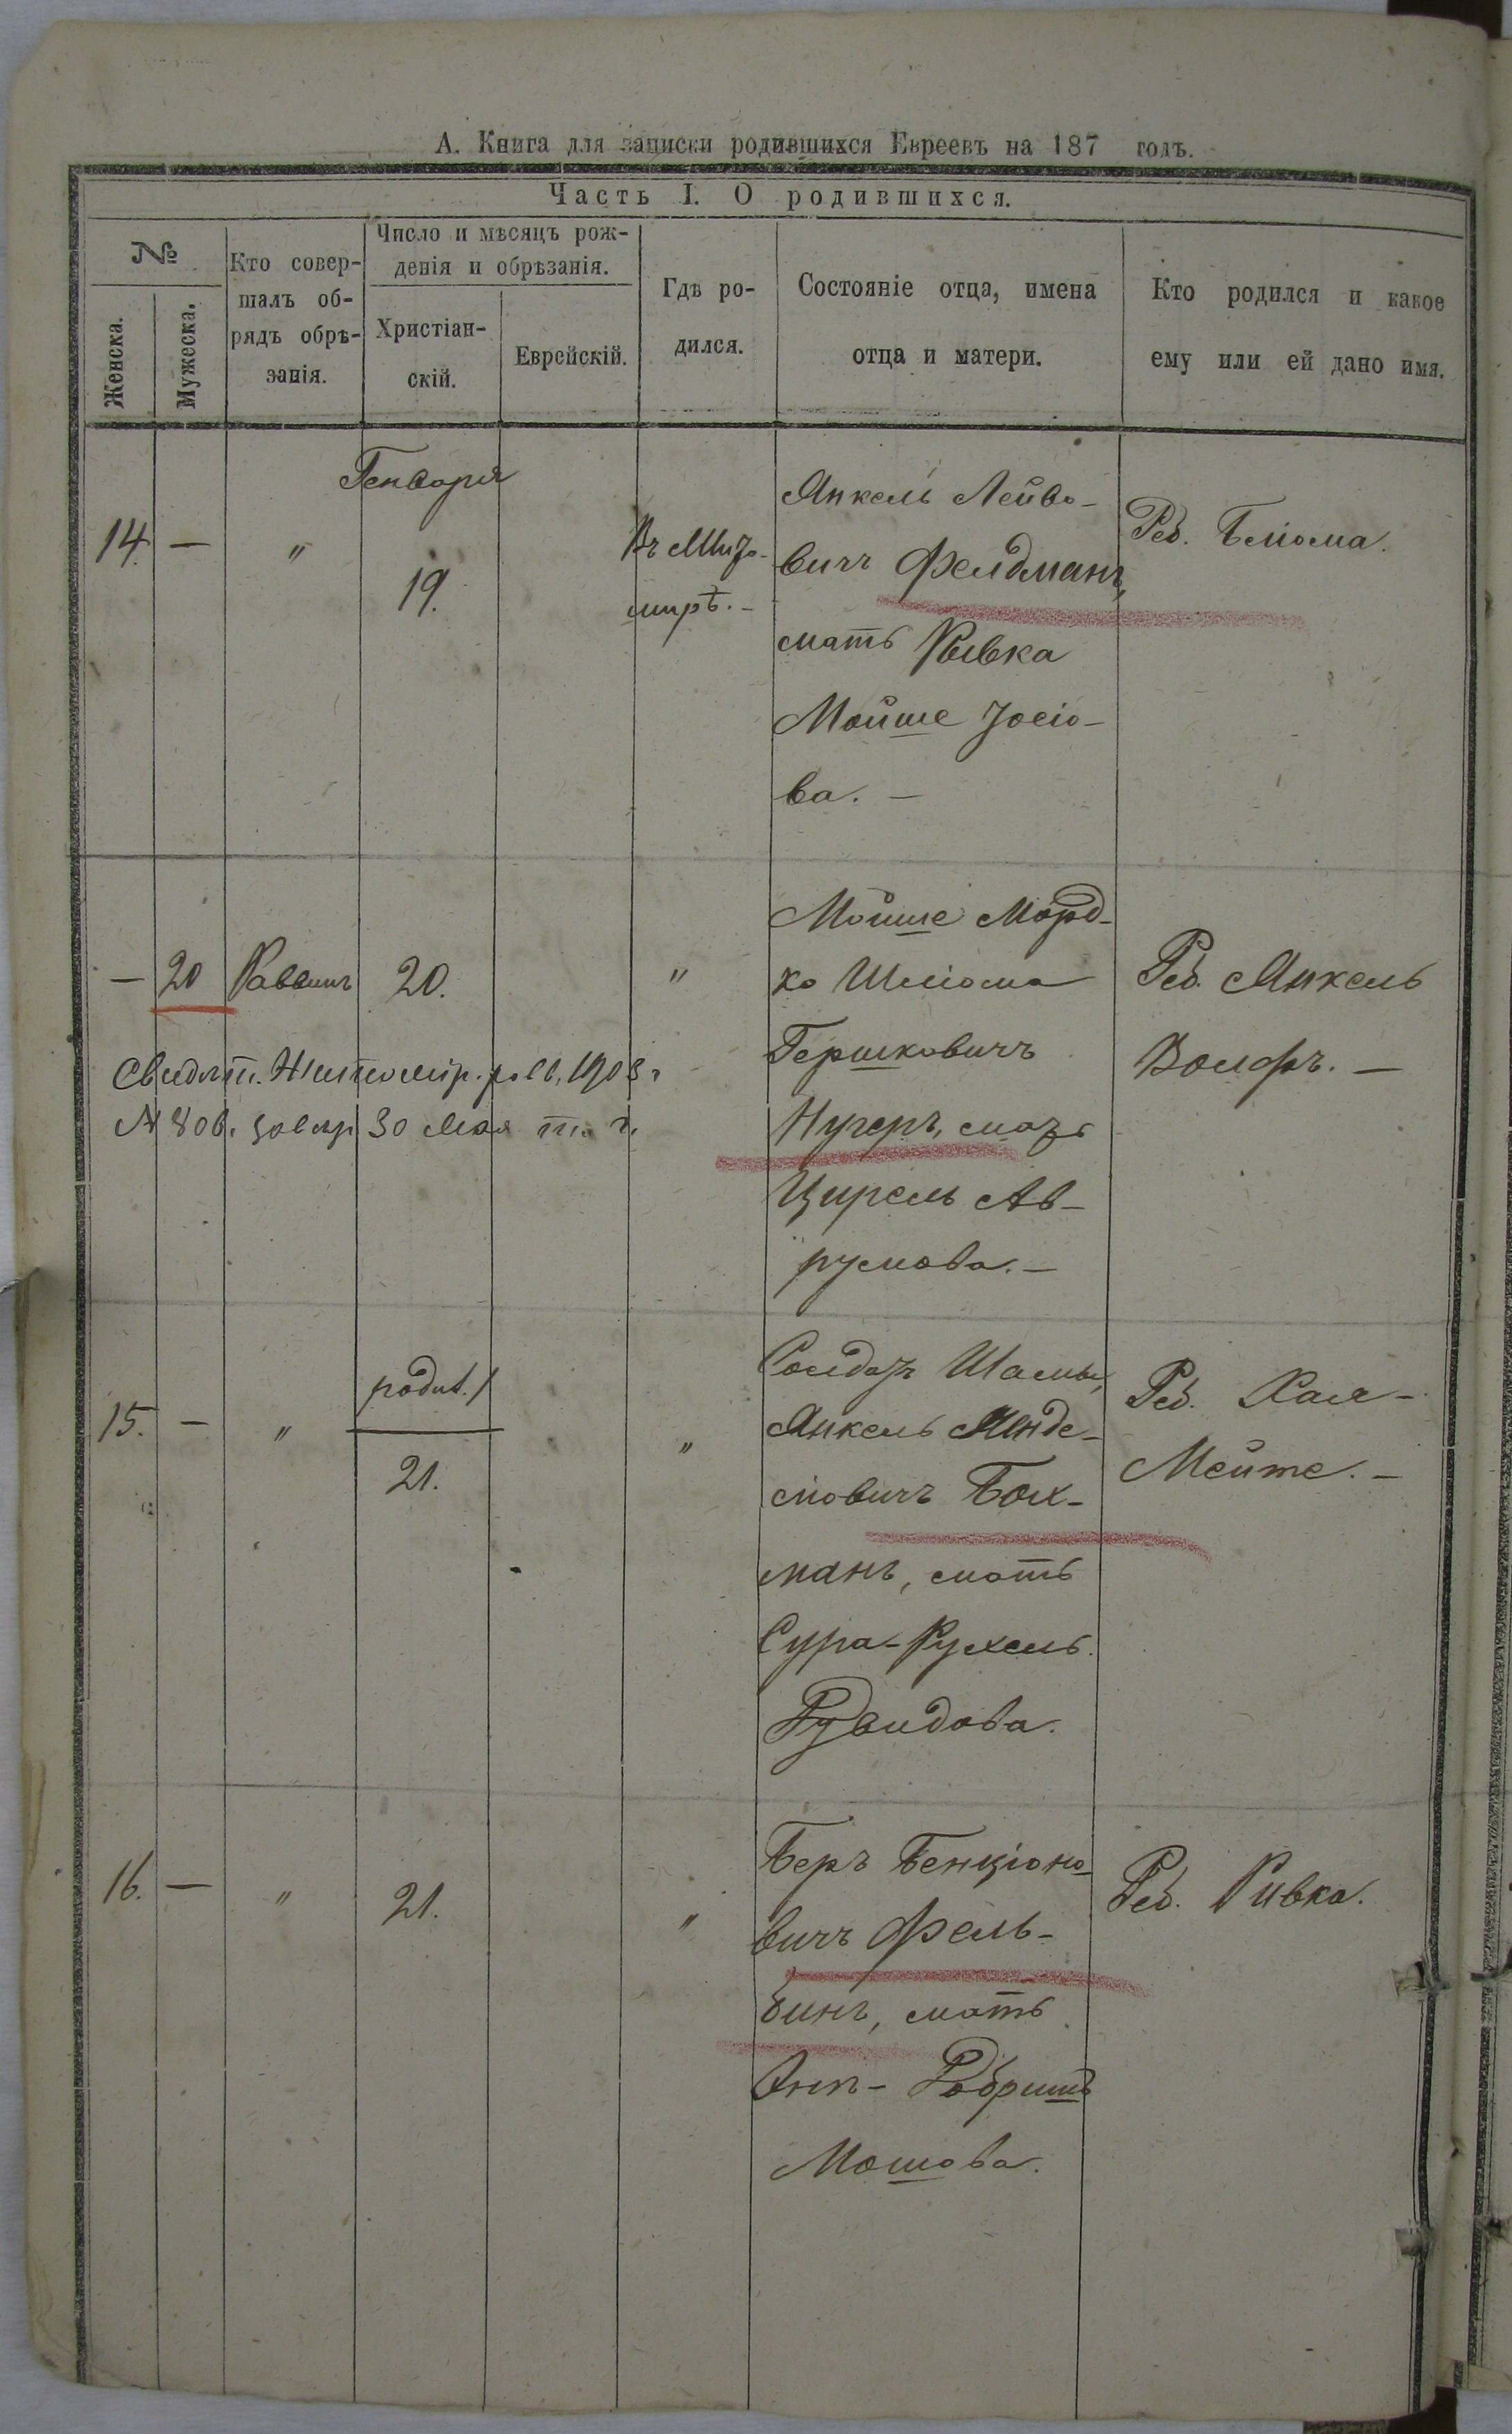 А. Книга для записки родившихся Евреевъ на 187 годъ.
Часть I. О родившихся.
№
Женска.
Мужеска.
Кто совер-
шалъ об-
рядъ обрѣ-
занія.
Число и мѣсяцъ рож-
денія и обрѣзанія.
Христіан-
скій.
Еврейскій.
Гдѣ ро-
дился.
Состояніе отца, имена
отца и матери.
Кто родился и какое
ему или ей дано имя.
Генваря
14. — " 19.
Въ
мирѣ. –
Янкель Лейбо-
вичъ Фелдманъ,
мать Рывка
Мойше Іосіо-
ва. –
Реб. Блюма.
— 20 Раввинъ 20. "
Мойше Морд-
ко Шлiома
Гершковичъ
мать
Цирель Ав-
румова. –
Реб. Янкель
Волфъ. –
Свидѣт. Житомір. равв. 1903 г
№ 806. 30 Мая т. г.
15. — "
родил.
21. "
Солдат
Янкель
Бох-
манъ, мать
Сура-Рухель
Дувидова.
Реб. Хая-
Мейте. –
16. — " 21. "
Беръ Бенціоно-
вичъ Фель-
бинъ, мать
Мошова.
Реб. Ривка.